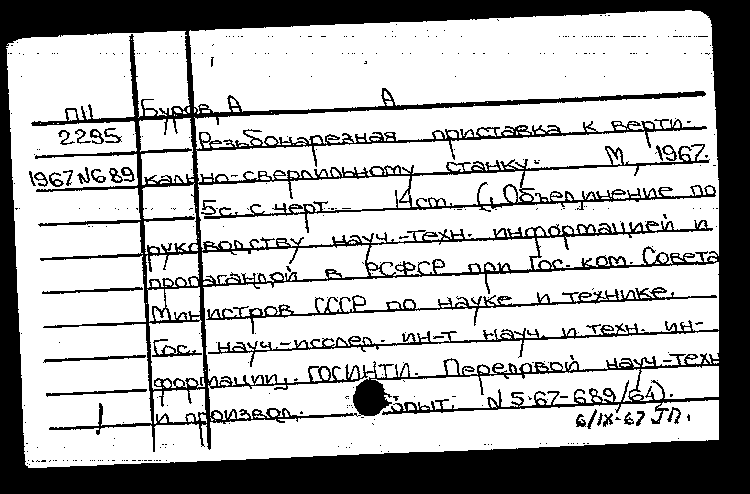 П11 Буров, А А
2295 Резьбонарезная приставка к верти-
1967 N689 кально-сверлильному станку. М., 1967.
5с. с черт. 14см. (Объединение по
руководству науч.-техн. информацией и
пропагандой в РСФСР при Гос. ком. Совета
Министров СССР по науке и технике.
Гос. науч.-исслед. ин-т науч. и техн. ин-
формации, ГОСИНТИ. Передовой науч.-техн
и производ. опыт. N5-67-689/64).
6/IX-67